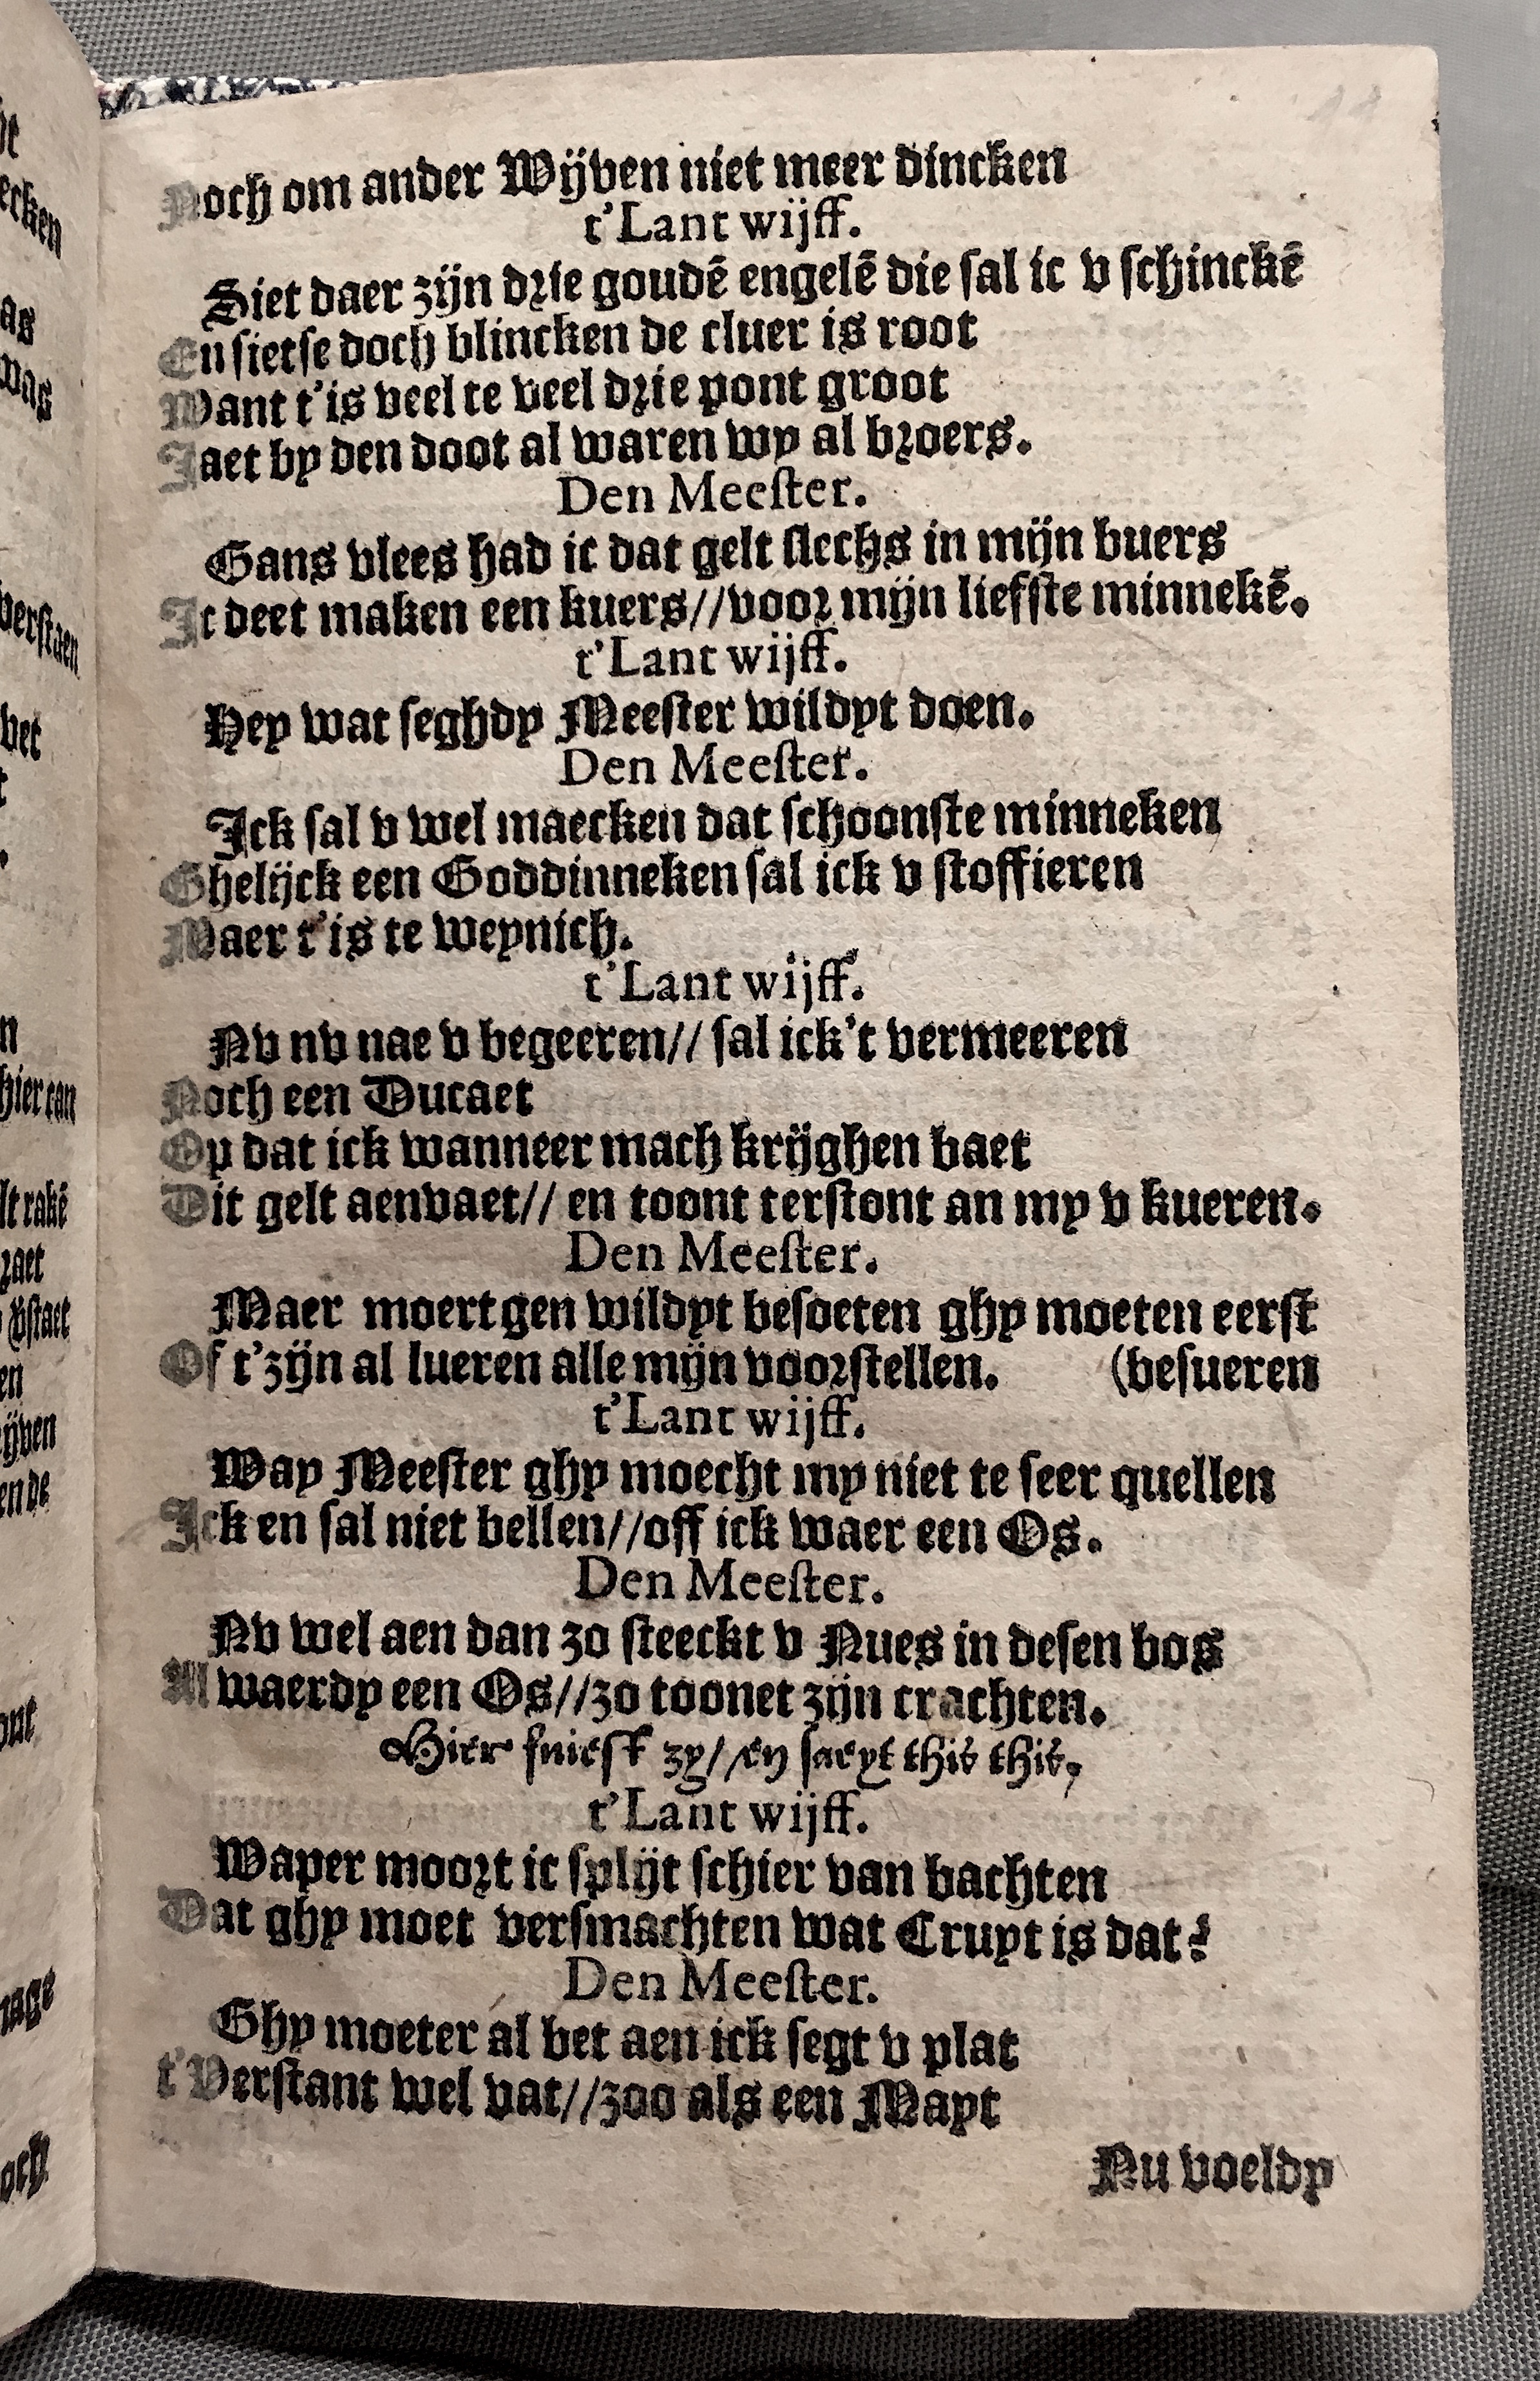 Noch om ander Wijven niet meer dincken
t’Lant wijff.
Siet daer zijn drie goudē engelē die sal ic v schinckē
En sietse doch blincken de cluer is root
Want t’is veel te veel drie pont groot
Jaet by den doot al waren wy al broers.
Den Meester.
Gans vlees had ic dat gelt slechs in mijn buers
Ic deet maken een kuers//voor mijn liefste minnekē.
t’Lant wijff.
Hey wat seghdy Meester wildyt doen.
Den Meester.
Jck sal v wel maecken dat schoonste minneken
Ghelijck een Goddinneken sal ick v stoffieren
Maer t’is te weynich.
t’Lant wijff.
Nv nv nae v begeeren// sal ick’t vermeeren
Noch een Ducaet
Op dat ick wanneer mach krijghen baet
Dit gelt aenvaet// en toont terstont an my v kueren.
Den Meester.
Maer moertgen wildyt besoeten ghy moeten eerst
Of t’zijn al lueren alle mijn voorstellen. (besueren
t’Lant wijff.
Way Meester ghy moecht my niet te seer quellen
Jck en sal niet bellen//off ick waer een Os.
Den Meester.
Nv wel aen dan zo steeckt v Nues in desen bos
Al waerdy een Os//zo toonet zijn crachten.
Hier sniest zy//en saeyt this this,
t’Lant wijff.
Waper moort ic splijt schier van bachten
Dat ghy moet versmachten wat Cruyt is dat?
Den Meester.
Ghy moeter al bet aen ick segt v plat
t’Verstant wel vat//zoo als een Mayt
Nu voeldy